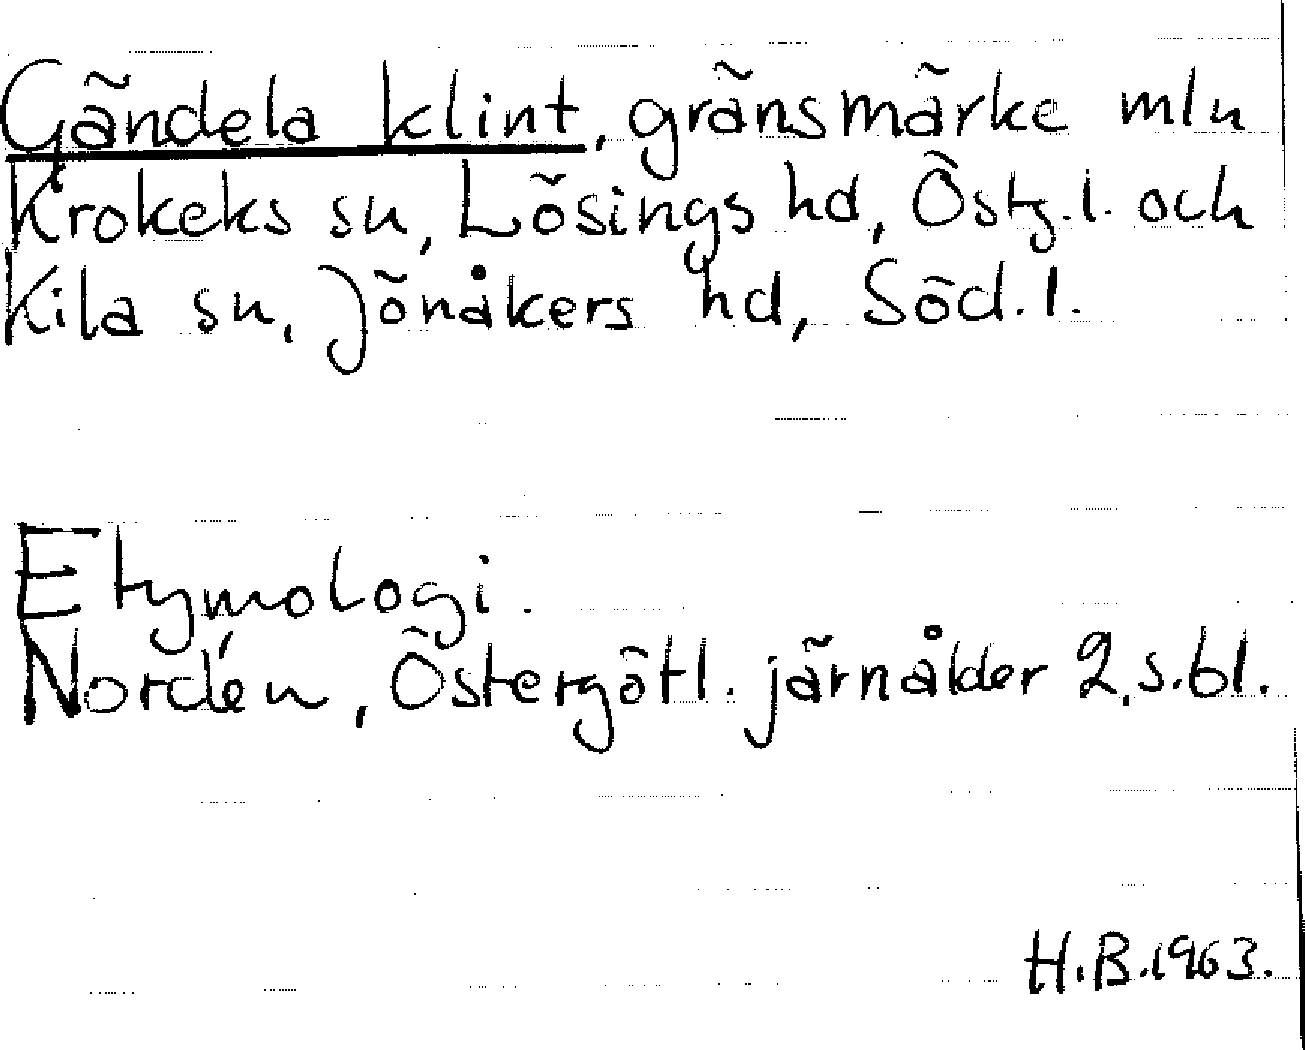 Gändela klint, gränsmärke mlu
Krokeks sn, Lösings hd, Östg.l. och
Kila sn, Jönåkers hd, Söd.l.
Etymologi.
Nordén, Östergötl. järnålder 2,s.bl.
H.B.1963.